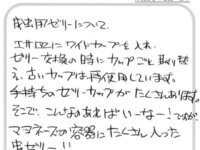 昆虫用ゼリーについて
エサ皿にワイドカップを入れ、
ゼリー交換の時にカップごと取り替
え、古いカップは再使用しています。
手持ちのゼリーカップがたくさんあります。
そこで、こんなのあればいーなー!ですが、
マヨネーズの容器にたくさん入った
虫ゼリー!!